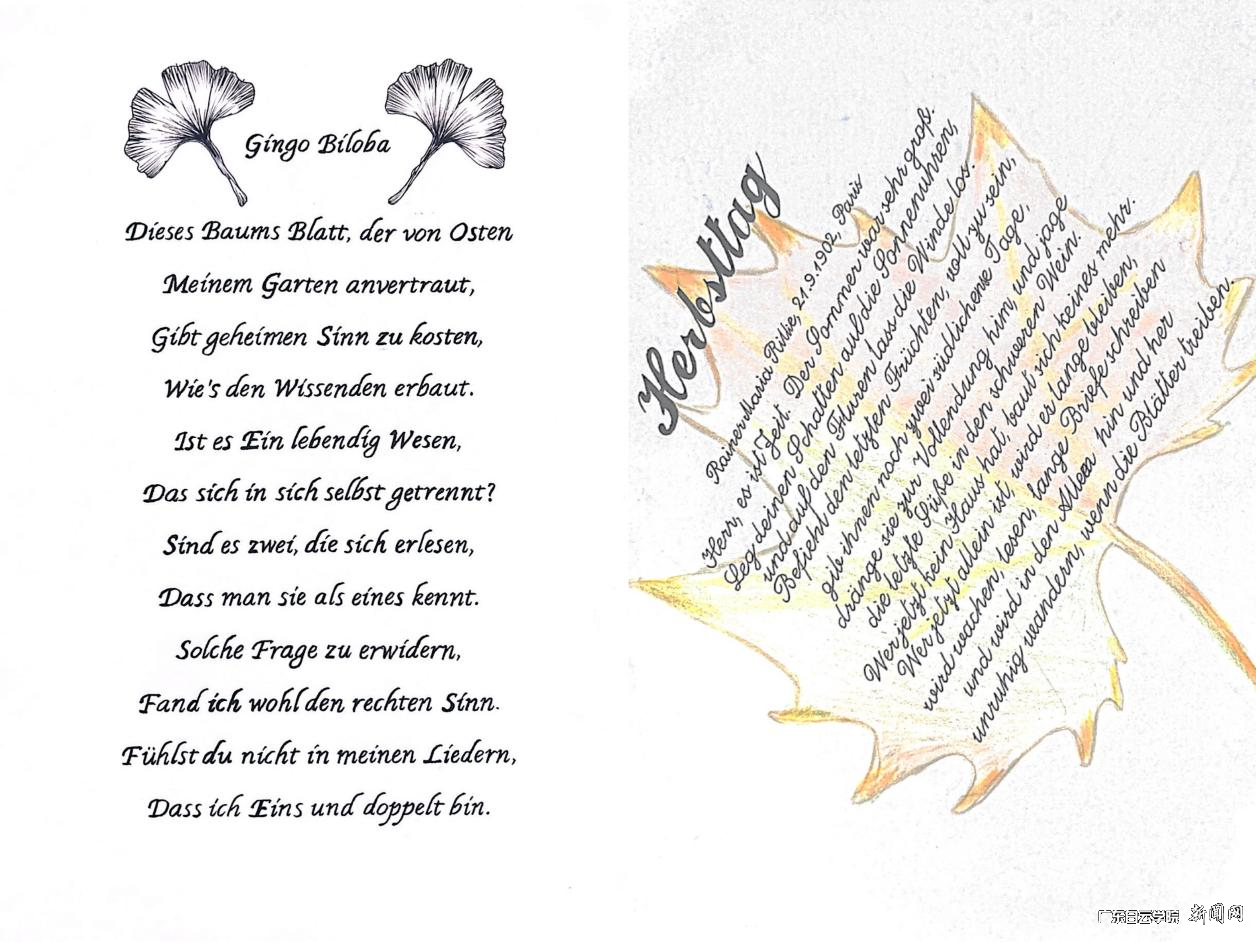 Gingo Biloba
Dieses Baums Blatt, der von Osten
Meinem Garten anvertraut,
Gibt geheimen Sinn zu kosten,
Wie's den Wissenden erbaut.
Ist es Ein lebendig Wesen,
Das sich in sich selbst getrennt?
Sind es zwei, die sich erlesen,
Dass man sie als eines kennt.
Solche Frage zu erwidern,
Fand ich wohl den rechten Sinn.
Fühlst du nicht in meinen Liedern,
Dass ich Eins und doppelt bin.
Herbsttag
Rainer Maria Rilke, 21.9.1902, Paris
Herr, es ist Zeit. Der Sommer war sehr groß.
Leg deinen Schatten auf die Sonnenuhren,
und auf den Fluren lass die Winde los.
Befiehl den letzten Früchten, voll zu sein,
gib ihnen noch zwei südlichere Tage,
dränge sie zur Vollendung hin, und jage
die letzte Süße in den schweren Wein.
Wer jetzt kein Haus hat, baut sich keines mehr.
Wer jetzt allein ist, wird es lange bleiben,
wird wachen, lesen, lange Briefe schreiben
und wird in den Alleen hin und her
unruhig wandern, wenn die Blätter treiben.
广东白云学院 新闻网